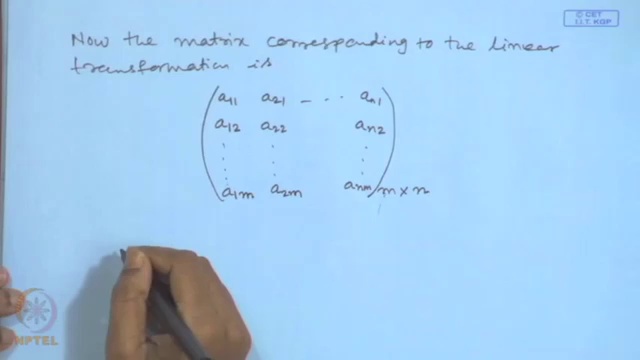 © CET
I.I.T. KGP
Now the matrix corresponding to the linear
transformation is
a11 a21 - ... an1
a12 a22 an2
⋮ ⋮ ⋮
a1m a2m anm m x n
NPTEL